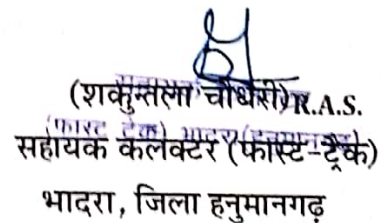 (शकुन्तला चौधरी) R.A.S.
सहायक कलेक्टर (फास्ट-ट्रैक)
भादरा, जिला हनुमानगढ़